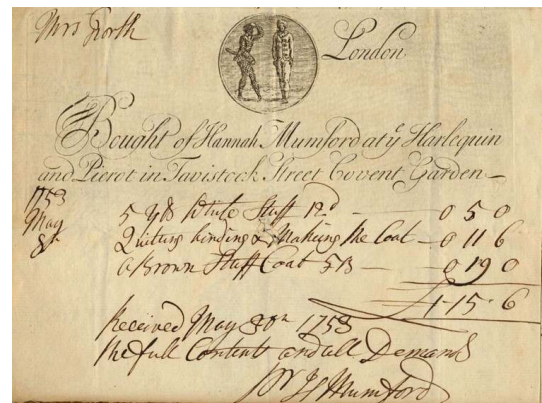 Mrs North
London
Bought of Hannah Mumford at yᵉ Harlequin
and Pierot in Tavistock Street Covent Garden
1753
May
8th
5 Yds White Stuff 12d 0 5 0
Quilting binding & Making the Coat 0 11 6
a Brown Stuff Coat 0 19 0
1 - 15 - 6
Received May 1753
the full Contents and all Demands
Mumford